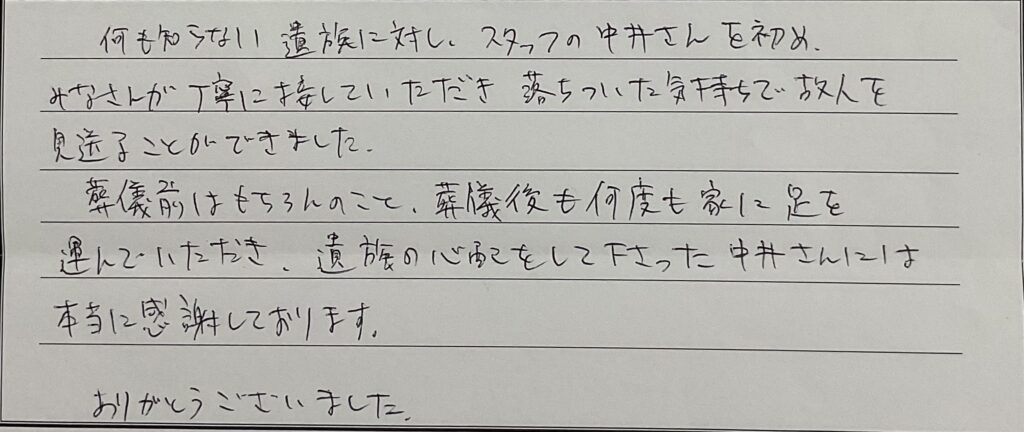 何も知らない遺族に対し、スタッフの中井さんを初め、
みなさんが丁寧に接していただき 落ちついた気持ちで故人を
見送ることができました。
葬儀前はもちろんのこと、葬儀後も何度も家に足を
運んでいただき、遺族の心配をして下さった中井さんには
本当に感謝しております。
ありがとうございました。